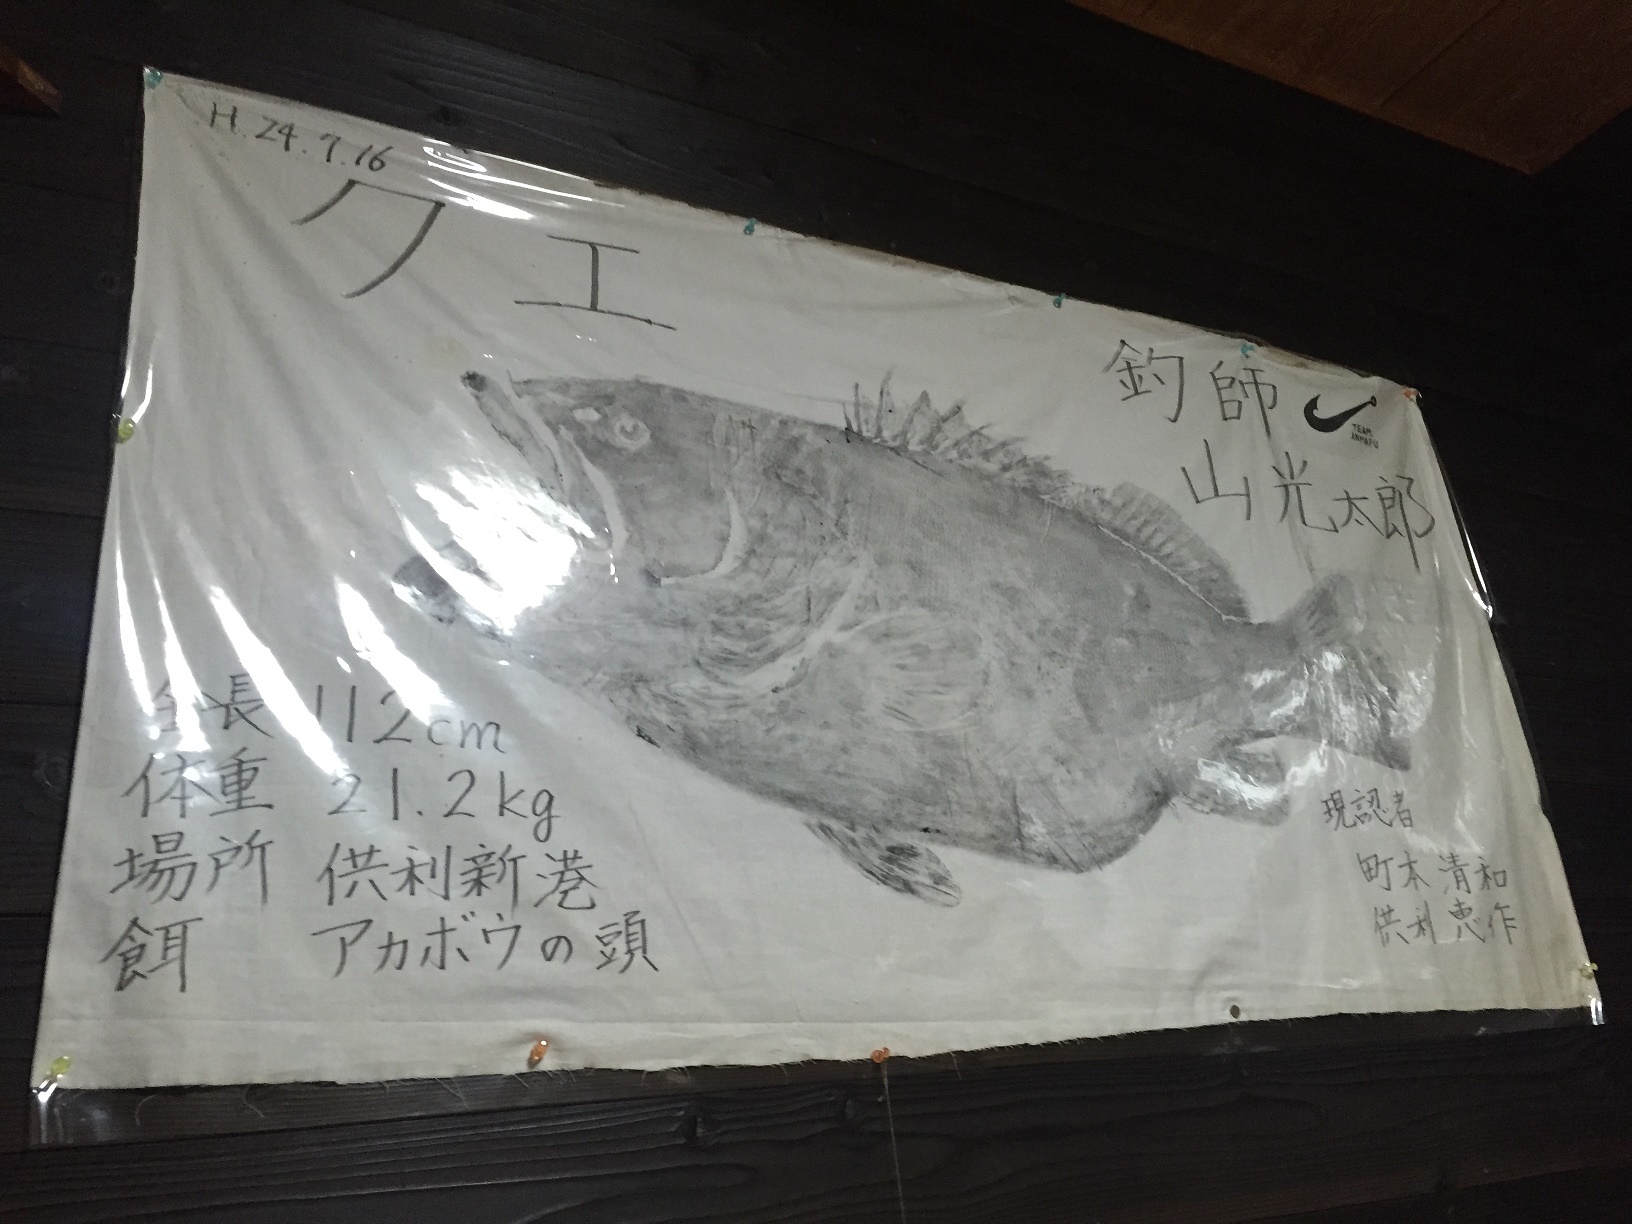 H.24.7.16
クエ
釣師
TEAM
山光太郎
全長 112cm
体重 21.2kg
場所 供利新港
餌 アカボウの頭
現認者
町本清和
供利恵作